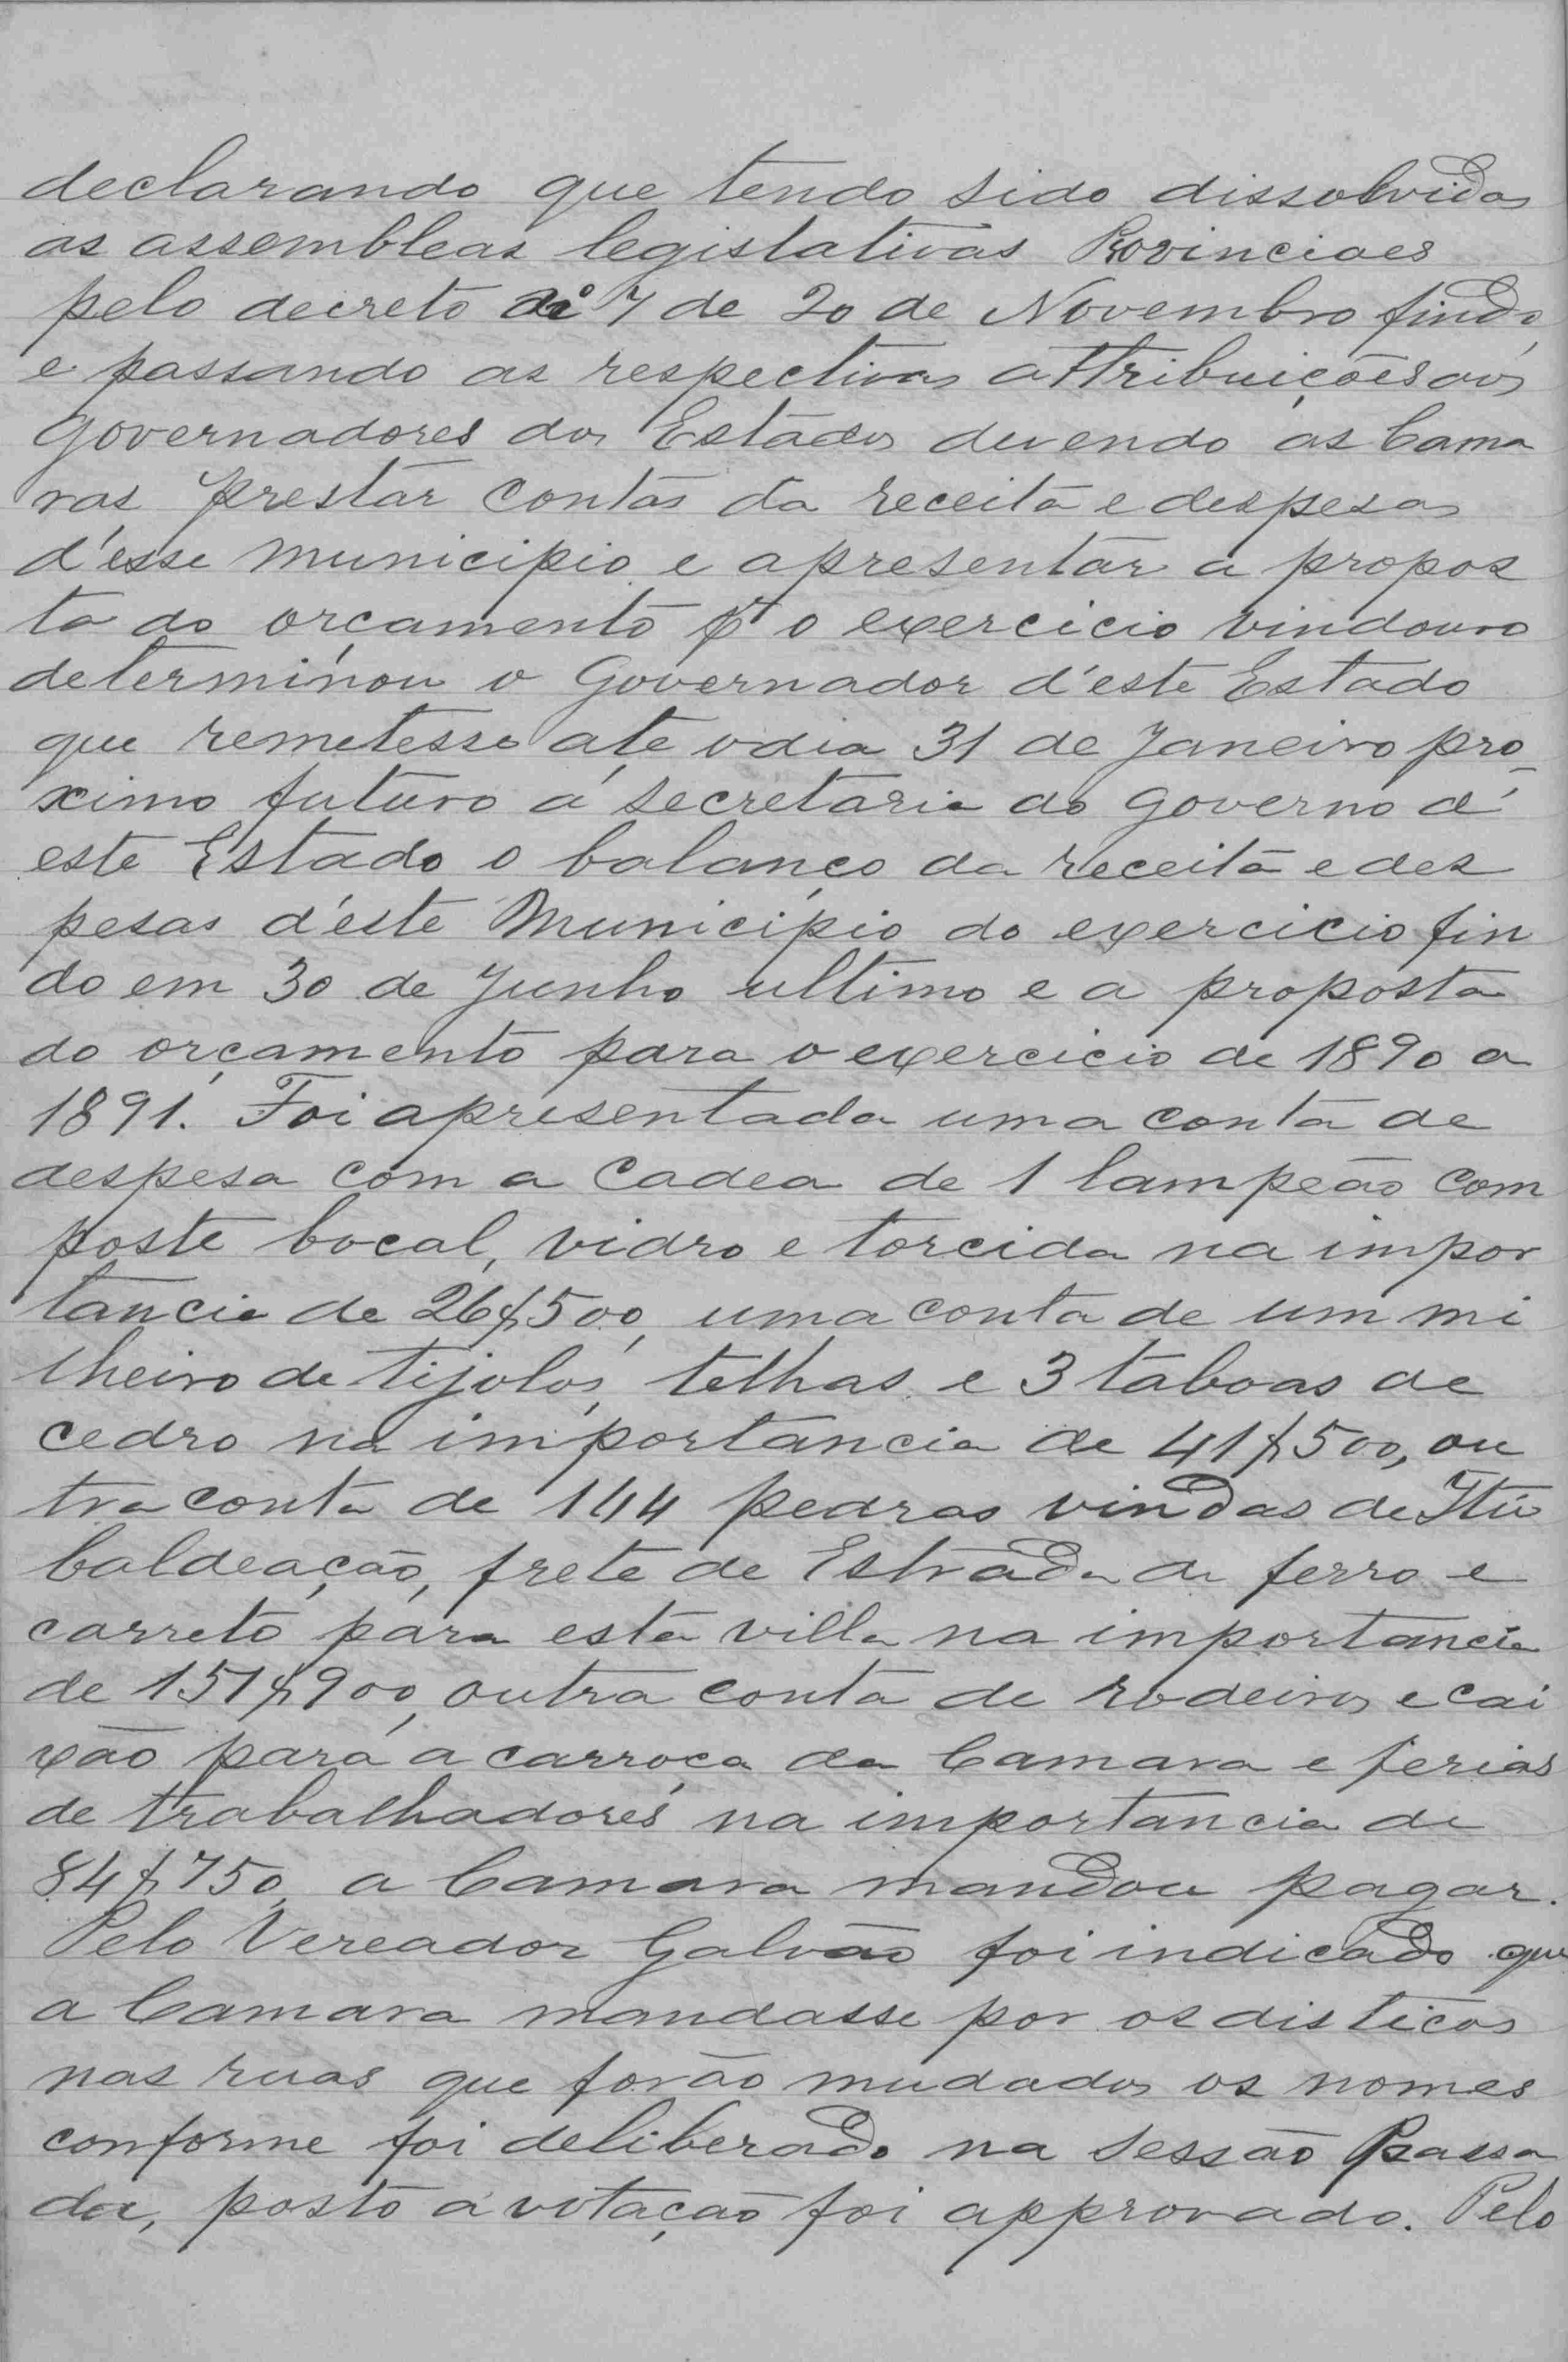 declarando que tendo sido dissolvidas
as assembleas legislativas Provinciaes
pelo decreto nº 7 de 20 de Novembro findo,
e passando as respectivas attribuições aos
Governadores dos Estados devendo as Cama
ras prestar contas da receita e despesas
d'esse municipio e apresentar a propos
ta do orçamento pª o exercicio vindouro
determinou o Governador d'este Estado
que remetesse até o dia 31 de Janeiro pro_
ximo futuro á secretaria do governo d'
este Estado o balanço da receita e des
pesas d'este Municipio do exercicio fin
do em 30 de Junho ultimo e a proposta
do orçamento para o exercicio de 1890 a
1891. Foi apresentada uma conta de
despesa com a Cadea de 1 lampeão com
poste bocal, vidro e torcida na impor
tancia de 26$500, uma conta de um mi
lheiro de tijolos, telhas e 3 taboas de
cedro na importancia de 41$500, ou
tra conta de 144 pedras vindas de Itú
baldeação, frete de Estrada de ferro e
carreto para esta villa na importancia
de 151$900, outra conta de rodeiros e cai
xão para a carroça da Camara e ferias
de trabalhadores na importancia de
84$750, a Camara mandou pagar.
Pelo Vereador Galvão foi indicado que
a Camara mandasse por os disticos
nas ruas que forão mudados os nomes
conforme foi deliberado na sessão Passa
da, posto a votação foi approvado. Pelo